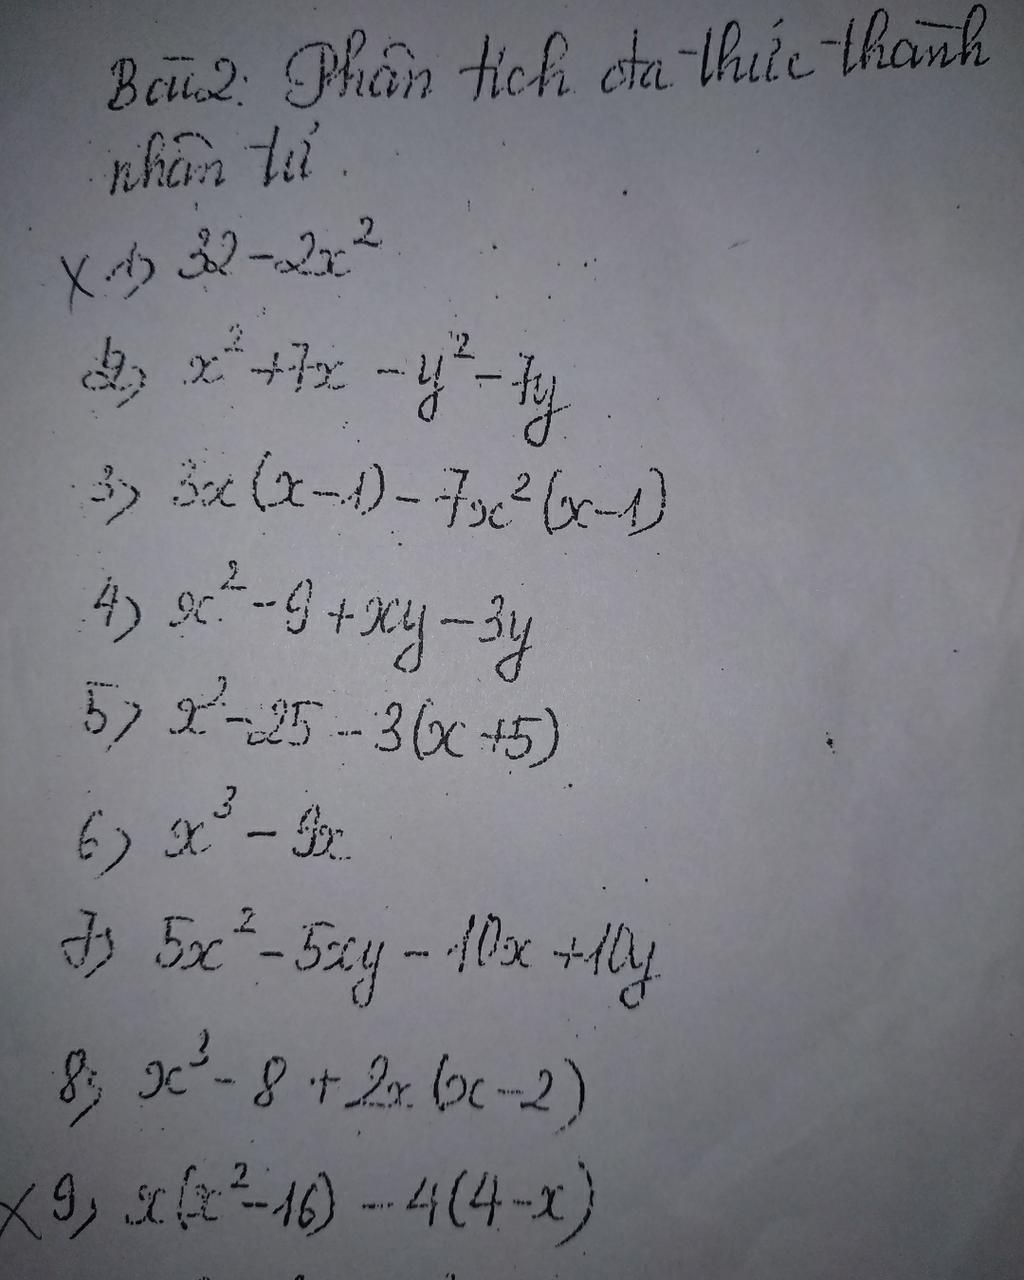 Bài 2: Phân tích đa thức thành
nhân tử.
x 1) 32 - 2x²
2) x² + 7x - y² - 7y
3) 3x(x-1) - 7x²(x-1)
4) x² - 9 + xy - 3y
5) x² - 25 - 3(x+5)
6) x³ - 9x
7) 5x² - 5xy - 10x + 10y
8) x³ - 8 + 2x(x-2)
x 9) x(x²-16) - 4(4-x)